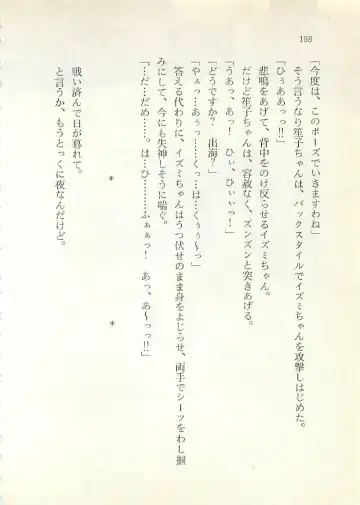 198
「今度は、このポーズでいきますわね」
そう言うなり笙子ちゃんは、バックスタイルでイズミちゃんを攻撃しはじめた。
「ひぅああっっ!!」
悲鳴をあげて、背中をのけ反らせるイズミちゃん。
だけど笙子ちゃんは、容赦なく、ズンズンと突きあげる。
「うあっ、あっ！　ひぃ、ひぃぃっ！」
「どうですか？　出海？」
「やぁっ…あぅっ……くっ…は…くぅぅ〜っ」
答える代わりに、イズミちゃんはうつ伏せのまま身をよじらせ、両手でシーツをわし掴
みにして、今にも失神しそうに喘ぐ。
「…だ…だめ……。は…ひ……ふぁぁっ！　あっ、あ〜っっ!!」
＊　＊
戦い済んで日が暮れて。
と言うか、もうとっくに夜なんだけど。